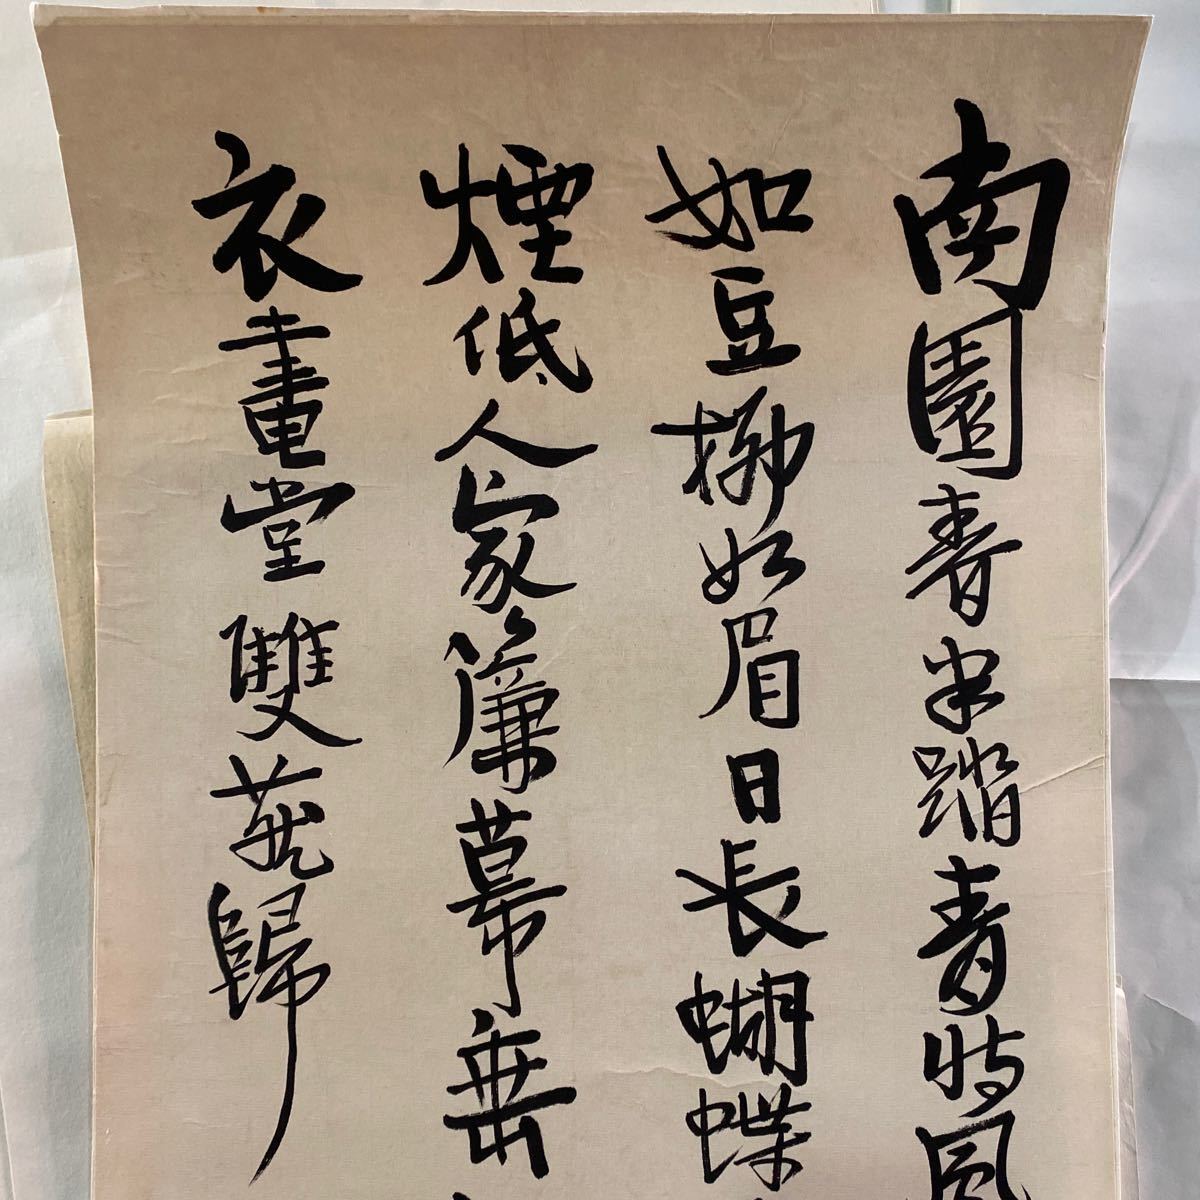 南園春半踏青時風
如豆柳如眉日長蝴蝶
煙低人家簾幕垂
衣畫堂雙燕歸